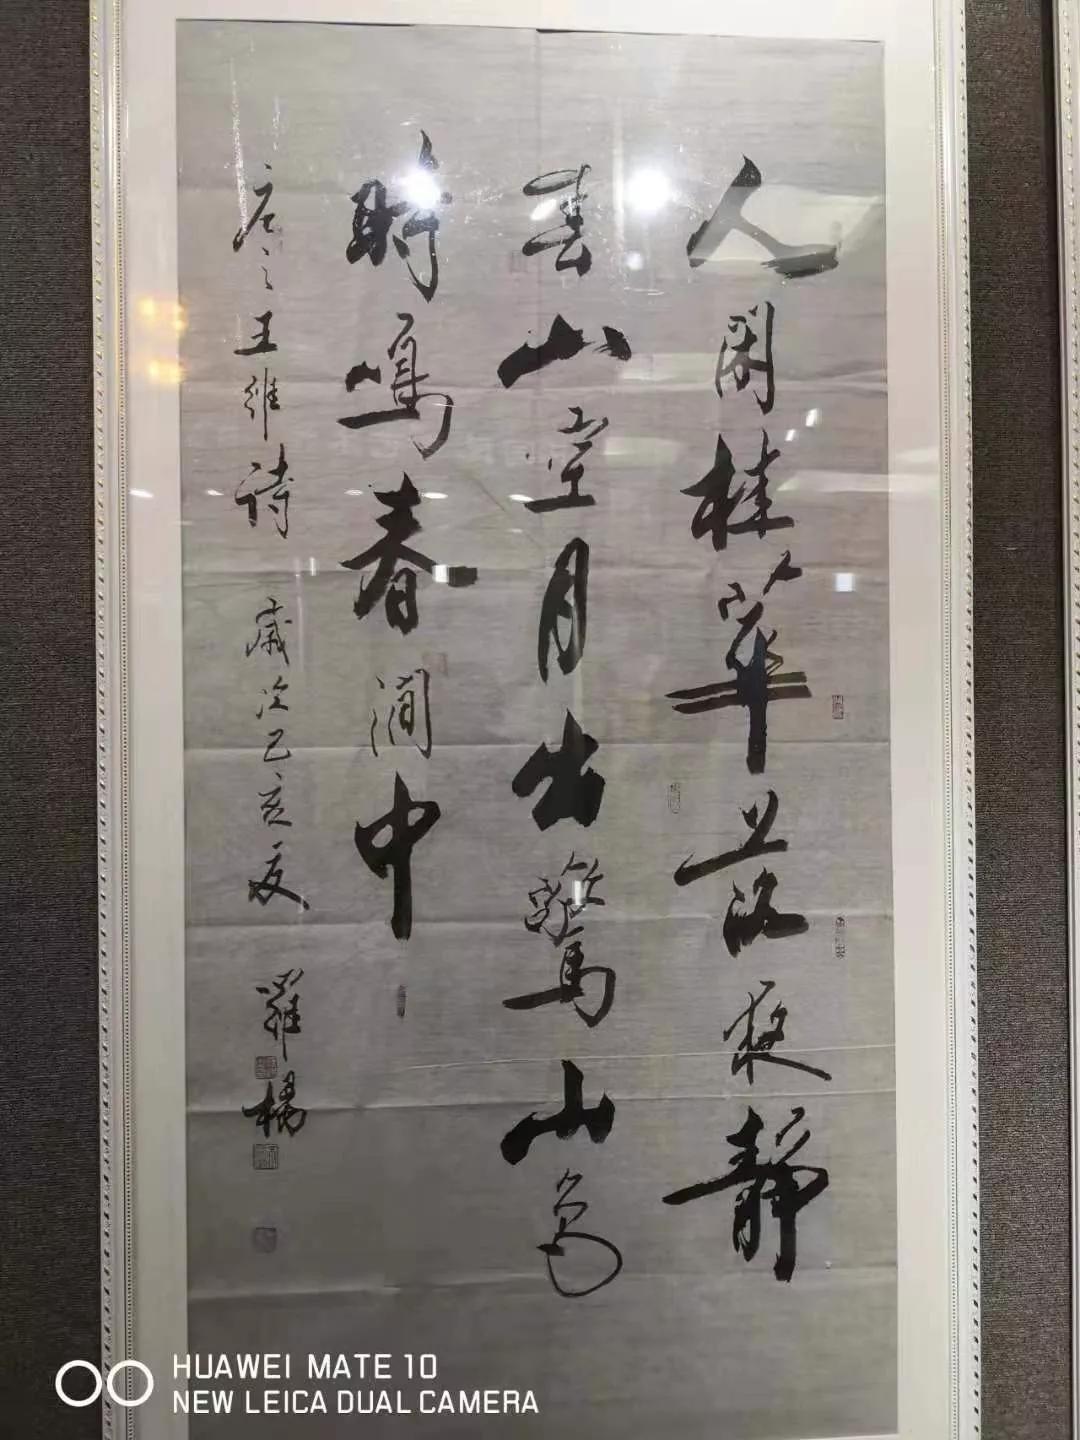 人閑桂華落夜靜
春山空月出驚山鳥
時鳴春澗中
唐王維詩 歲次己亥夏 羅楊
HUAWEI MATE 10
NEW LEICA DUAL CAMERA